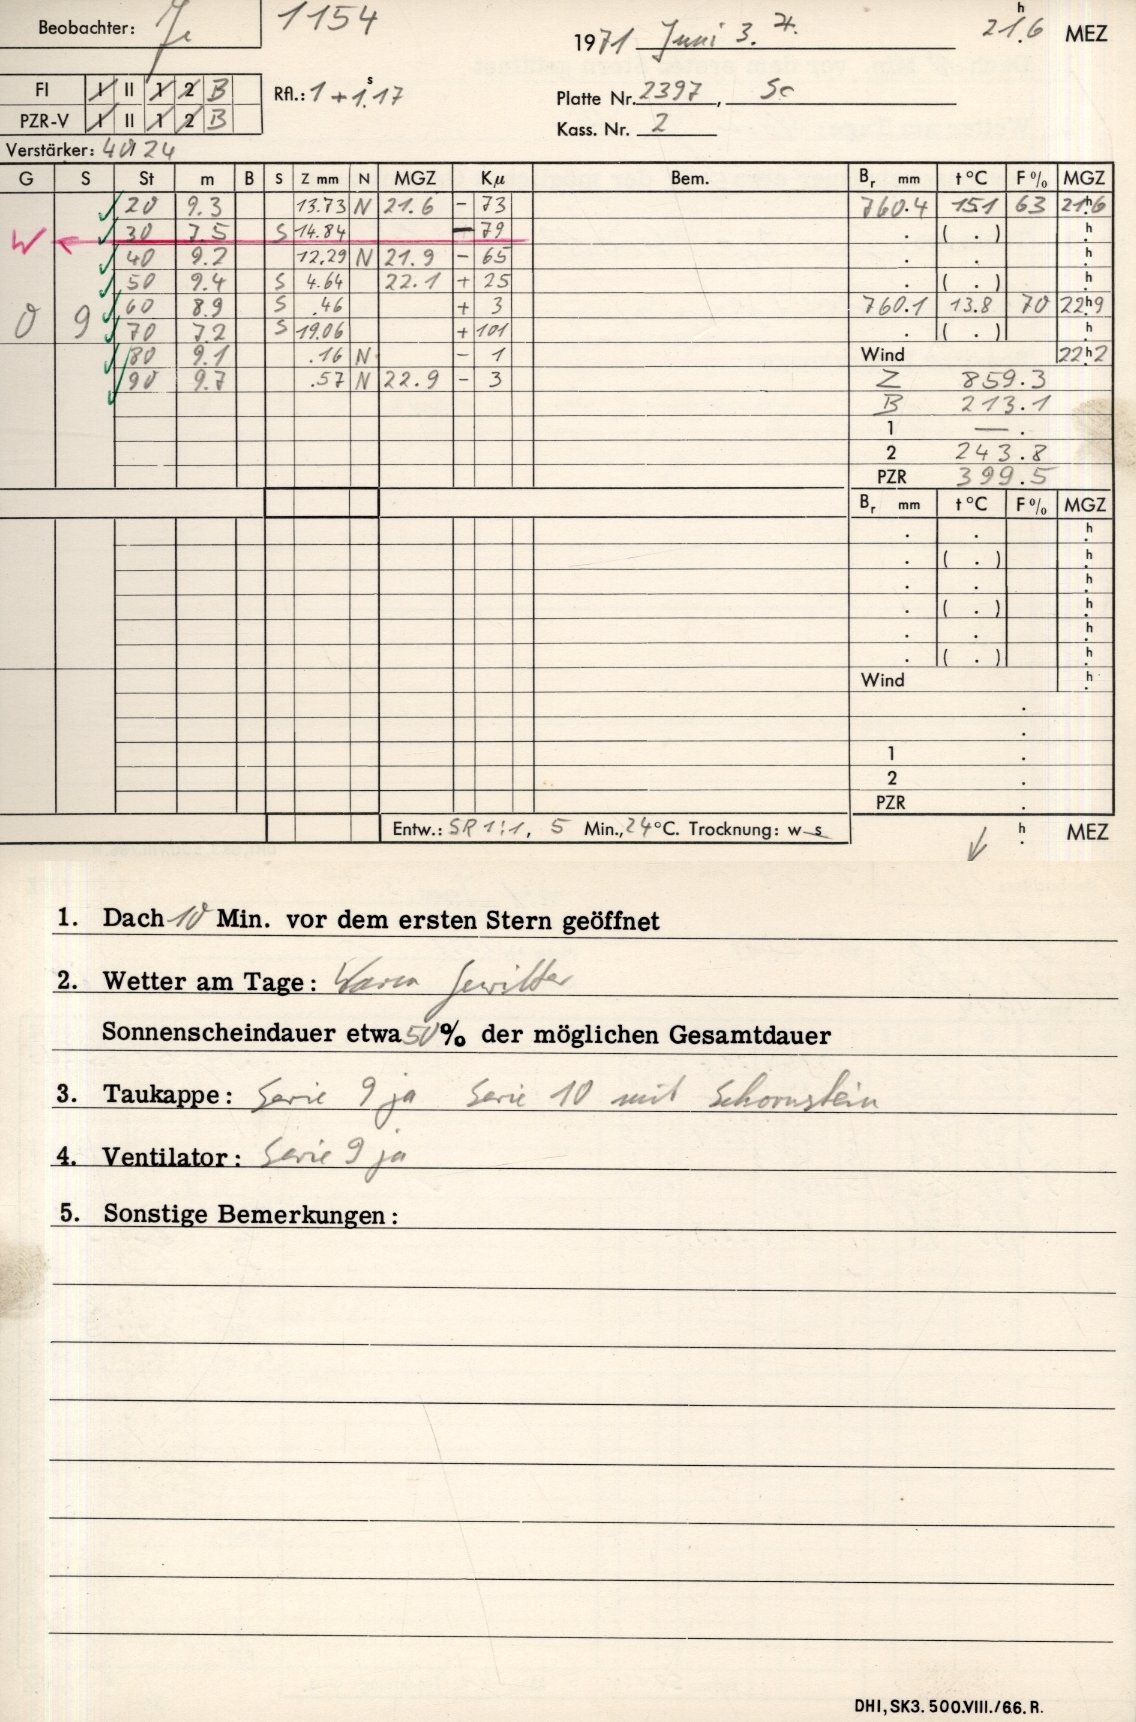 Beobachter: Je 1154 1971 Juni 3. 21.6 h MEZ
FI I II 1 2 B Rfl.: 1 + 1.17 s Platte Nr. 2397, Sc
PZR-V I II 1 2 B Kass. Nr. 2
Verstärker: 24
G S St m B S Z mm N MGZ Kμ Bem. Br mm t °C F % MGZ
20 9.3 13.73 N 21.6 - 73 760.4 15.1 63 21h.6
W 30 7.5 S 14.84 - 79 ( . ) h
40 9.2 12.29 N 21.9 - 65 . . h
50 9.4 S 4.64 22.1 + 25 ( . ) h
0 9 60 8.9 S .46 + 3 760.1 13.8 70 22h.9
70 7.2 S 19.06 + 101 ( . ) h
80 9.1 .16 N - 1 Wind 22h2
90 9.7 .57 N 22.9 - 3 Z 859.3
B 213.1
1 — .
2 243.8
PZR 399.5
Br mm t °C F % MGZ
. . h
. ( . ) h
. . h
. ( . ) h
. . h
. ( . ) h
Wind h
.
.
1 .
2 .
PZR .
Entw.: SR 1:1, 5 Min., 24 °C. Trocknung: w s h MEZ
1. Dach 10 Min. vor dem ersten Stern geöffnet
2. Wetter am Tage: Warm Gewitter
Sonnenscheindauer etwa 50 % der möglichen Gesamtdauer
3. Taukappe: Serie 9 ja Serie 10 mit Schornstein
4. Ventilator: Serie 9 ja
5. Sonstige Bemerkungen:
DHI, SK3. 500.VIII./66. R.